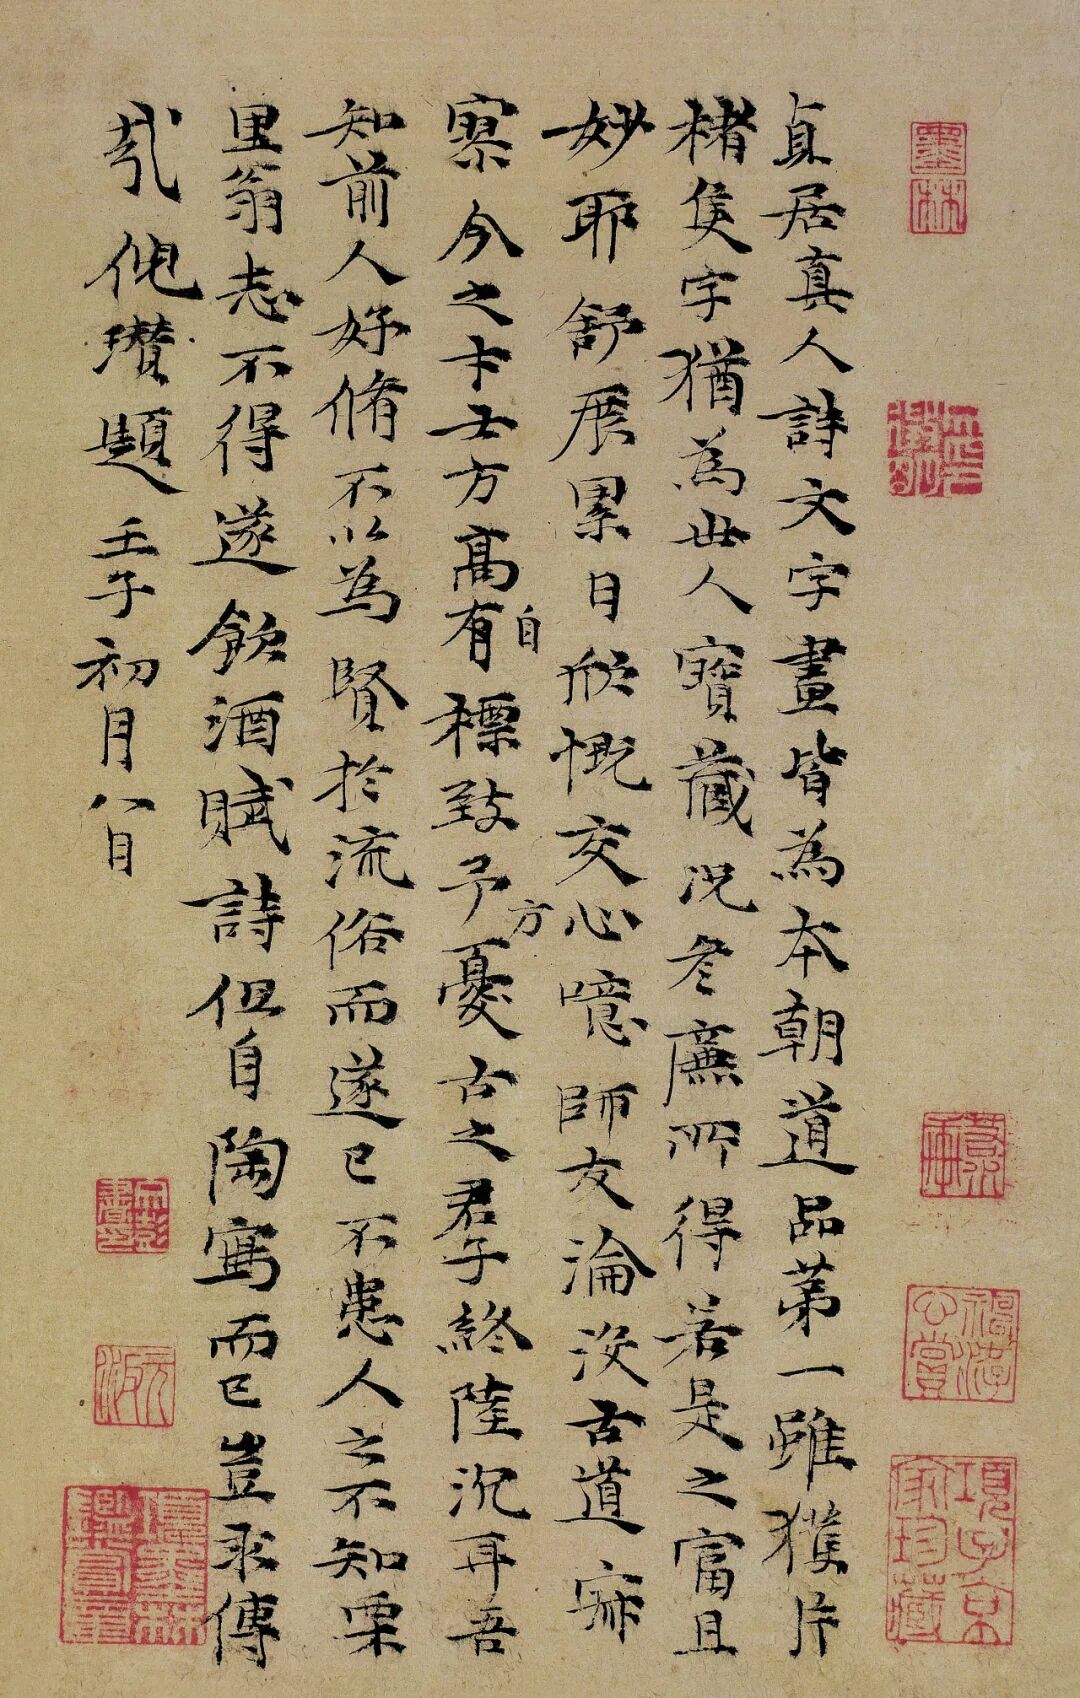 貞居真人詩文字畫皆為本朝道品第一雖獲片
楮隻字猶為世人寶藏况彥廉所得若是之富且
妙耶舒展累日欣慨交心噫師友淪沒古道寂
寥今之才士方高有自標致予方憂古之君子終陸沉耳吾
知前人好脩不以為賢於流俗而遂已不患人之不知栗
里翁志不得遂飲酒賦詩但自陶寫而已豈求傳
哉倪瓚題壬子初月八日
墨林
項子京家珍藏
元汴
項墨林鑑賞章